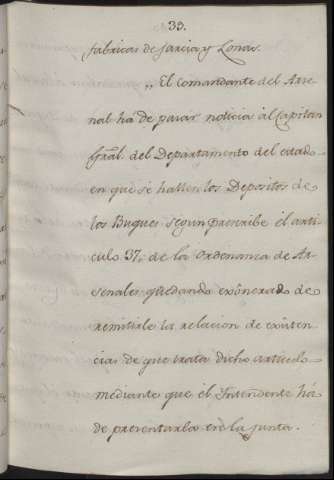 39.
fabricas de Jarcia y Lonas.
„El Comandante del Arse-
nal há de pasar noticia al Capitan
Gral. del Departamento del estado
en que se hallen los Depositos de
los Buques segun prescribe él arti-
culo 37, de la Ordenanza de Ar-
senales quedando exônerado de
remitirle la relacion de existen-
cias de que trata dicho articulo
mediante que él Intendente há
de presentarla en la junta.